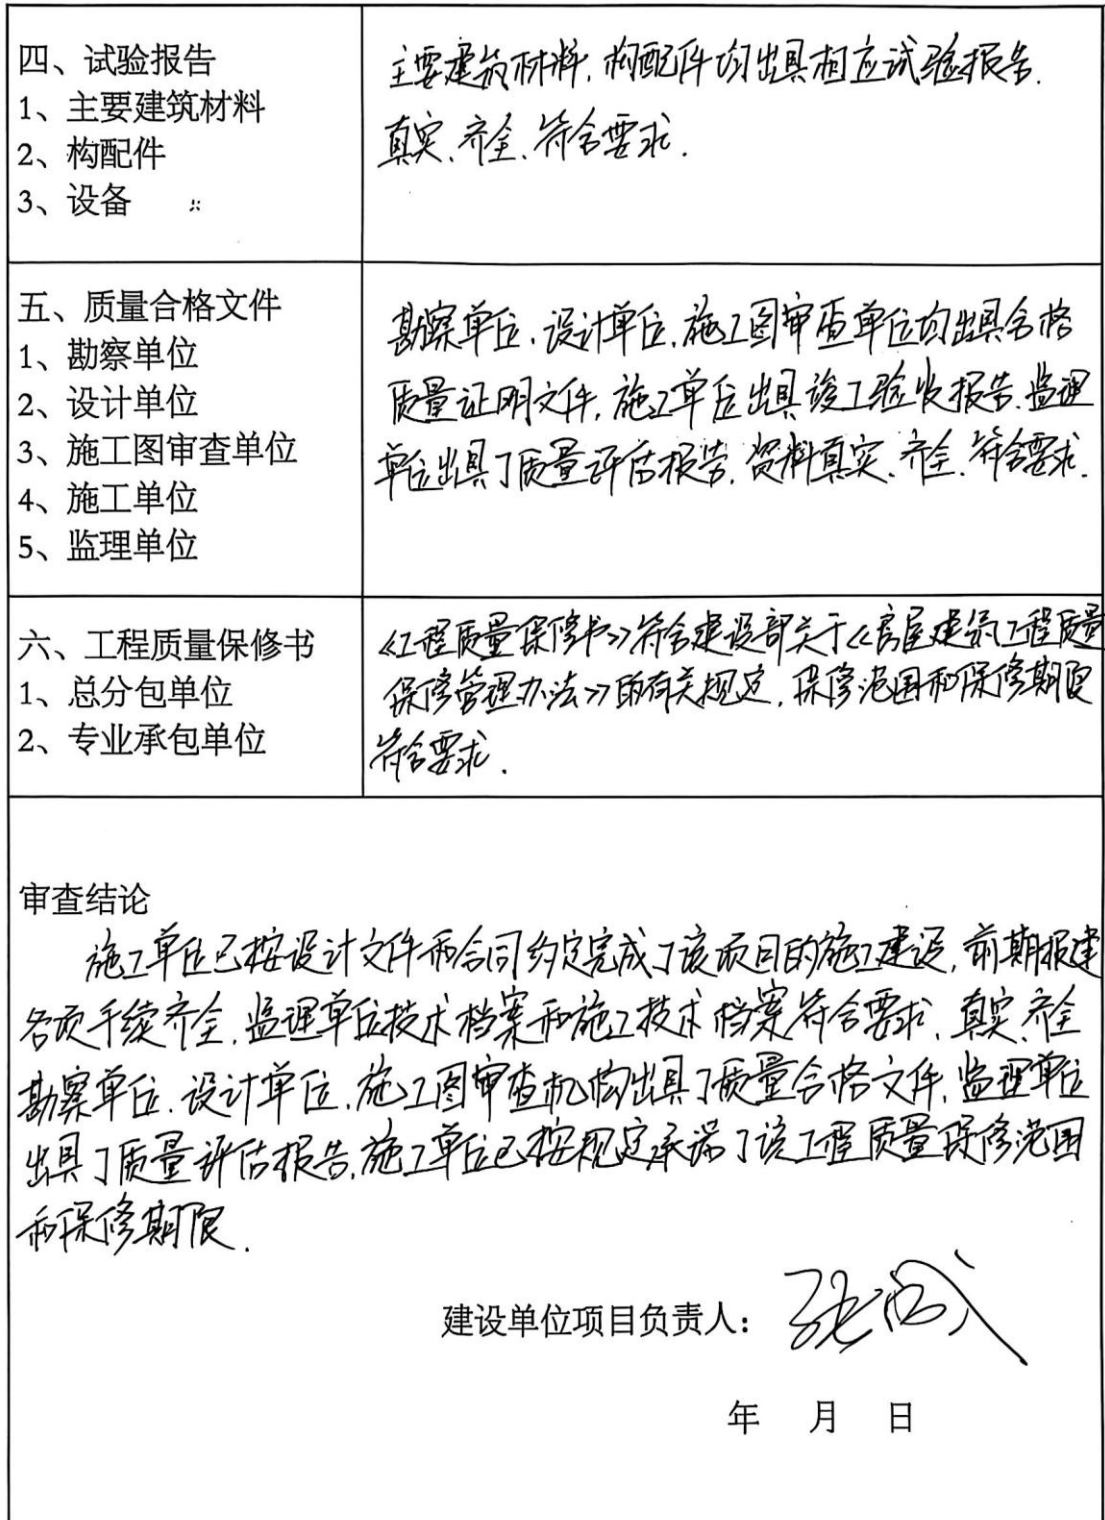 四、试验报告
1、主要建筑材料
2、构配件
3、设备
主要建筑材料,构配件均出具相应试验报告.
真实.齐全.符合要求.
五、质量合格文件
1、勘察单位
2、设计单位
3、施工图审查单位
4、施工单位
5、监理单位
勘察单位.设计单位.施工图审查单位均出具合格
质量证明文件,施工单位出具竣工验收报告.监理
单位出具了质量评估报告.资料真实.齐全.符合要求.
六、工程质量保修书
1、总分包单位
2、专业承包单位
《工程质量保修书》符合建设部关于《房屋建筑工程质量
保修管理办法》的有关规定,保修范围和保修期限
符合要求.
审查结论
施工单位已按设计文件和合同约定完成了该项目的施工建设,前期报建
各项手续齐全.监理单位技术档案和施工技术档案符合要求.真实.齐全
勘察单位.设计单位.施工图审查机构出具了质量合格文件,监理单位
出具了质量评估报告.施工单位已按规定承诺了该工程质量保修范围
和保修期限.
建设单位项目负责人:
年 月 日